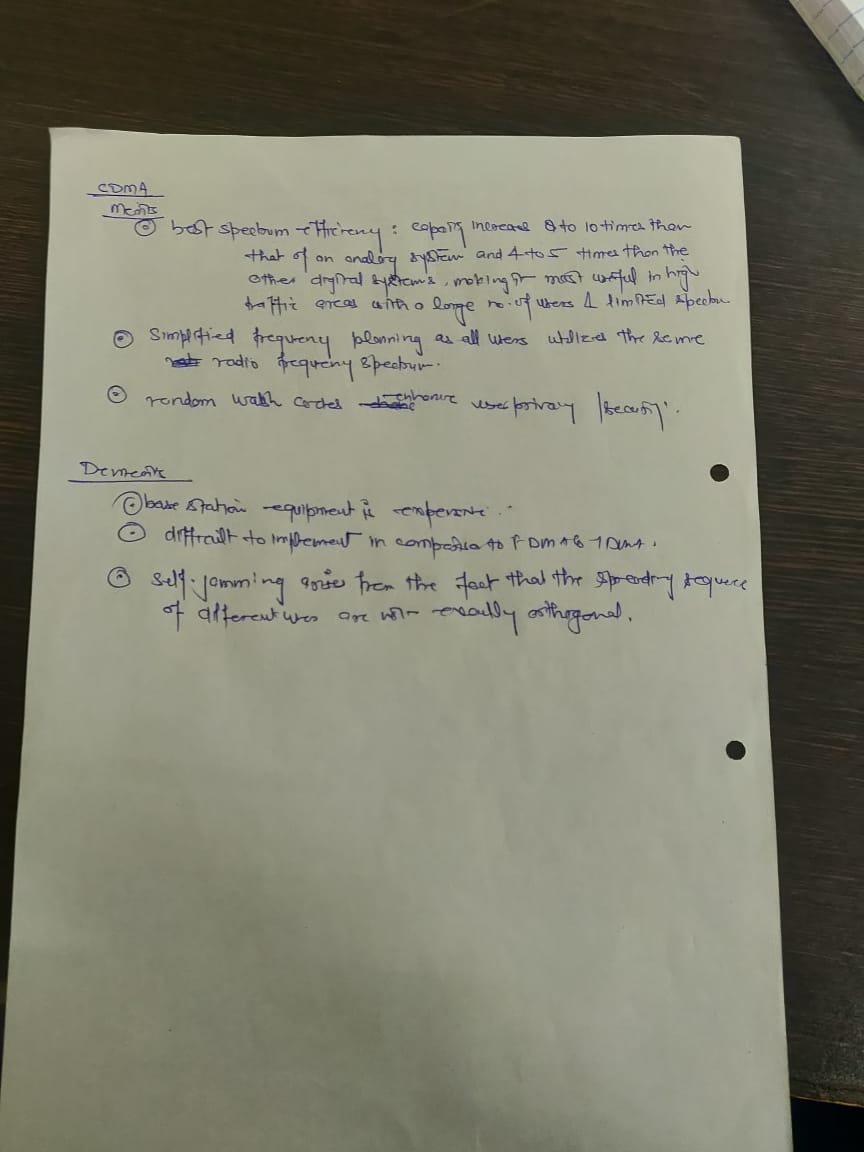 CDMA
Merits
best spectrum efficiency : capacity increases 8 to 10 times than
that of an analog system and 4 to 5 times than the
other digital systems, making it most useful in high
traffic areas with a large no. of users & limited spectrum
Simplified frequency planning as all users utilizes the same
radio frequency spectrum.
random walsh codes enhance user privacy / security.
Demerits
base station equipment is expensive.
difficult to implement in comparison to FDMA & TDMA.
self-jamming arises from the fact that the spreading sequence
of different users are not exactly orthogonal.